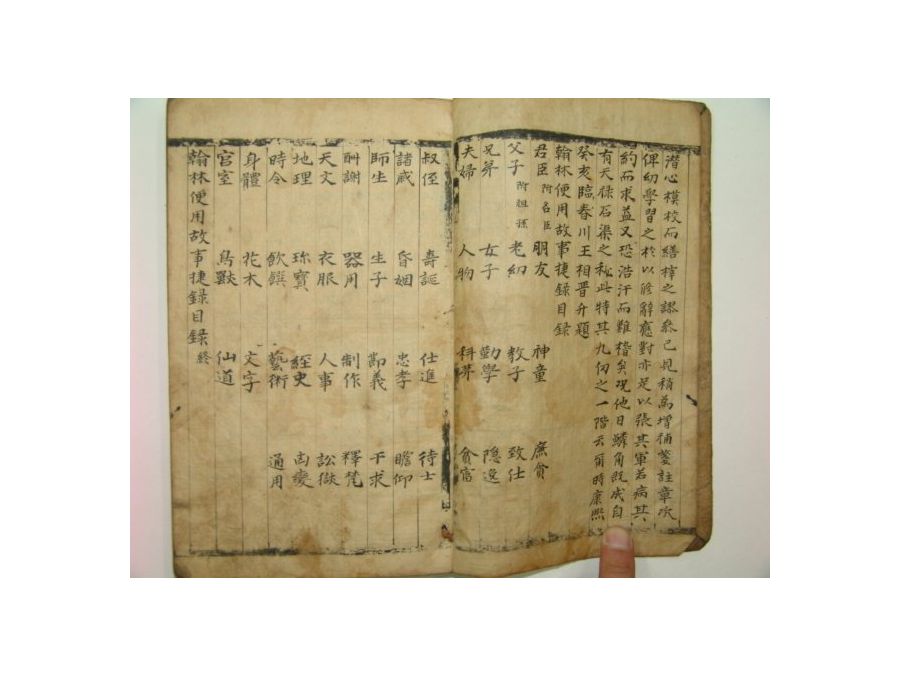 潛心模校而繕梓之謬叅已見稍爲增補箋註章次
俾幼學習之於以修辭應對亦足以張其軍若病其
約而求益又恐浩汗而難稽矣況他日鱗角旣成自
有天祿石渠之秘此特其九仞之一階云爾時康熙
癸亥臨春川王相晋升題
翰林便用故事捷録目録
君臣 附名臣 朋友 神童 廉貪
父子 附祖孫 老幼 教子 致仕
兄弟 女子 勤學 隱逸
夫婦 人物 科第 貪富
叔侄 壽誕 仕進 待士
諸戚 昏姻 忠孝 瞻仰
師生 生子 節義 干求
酬謝 器用 制作 釋梵
天文 衣服 人事 訟獄
地理 珎寳 經史 凶變
時令 飮饌 藝術 通用
身體 花木 文字
宮室 鳥獸 仙道
翰林便用故事捷録目録 終